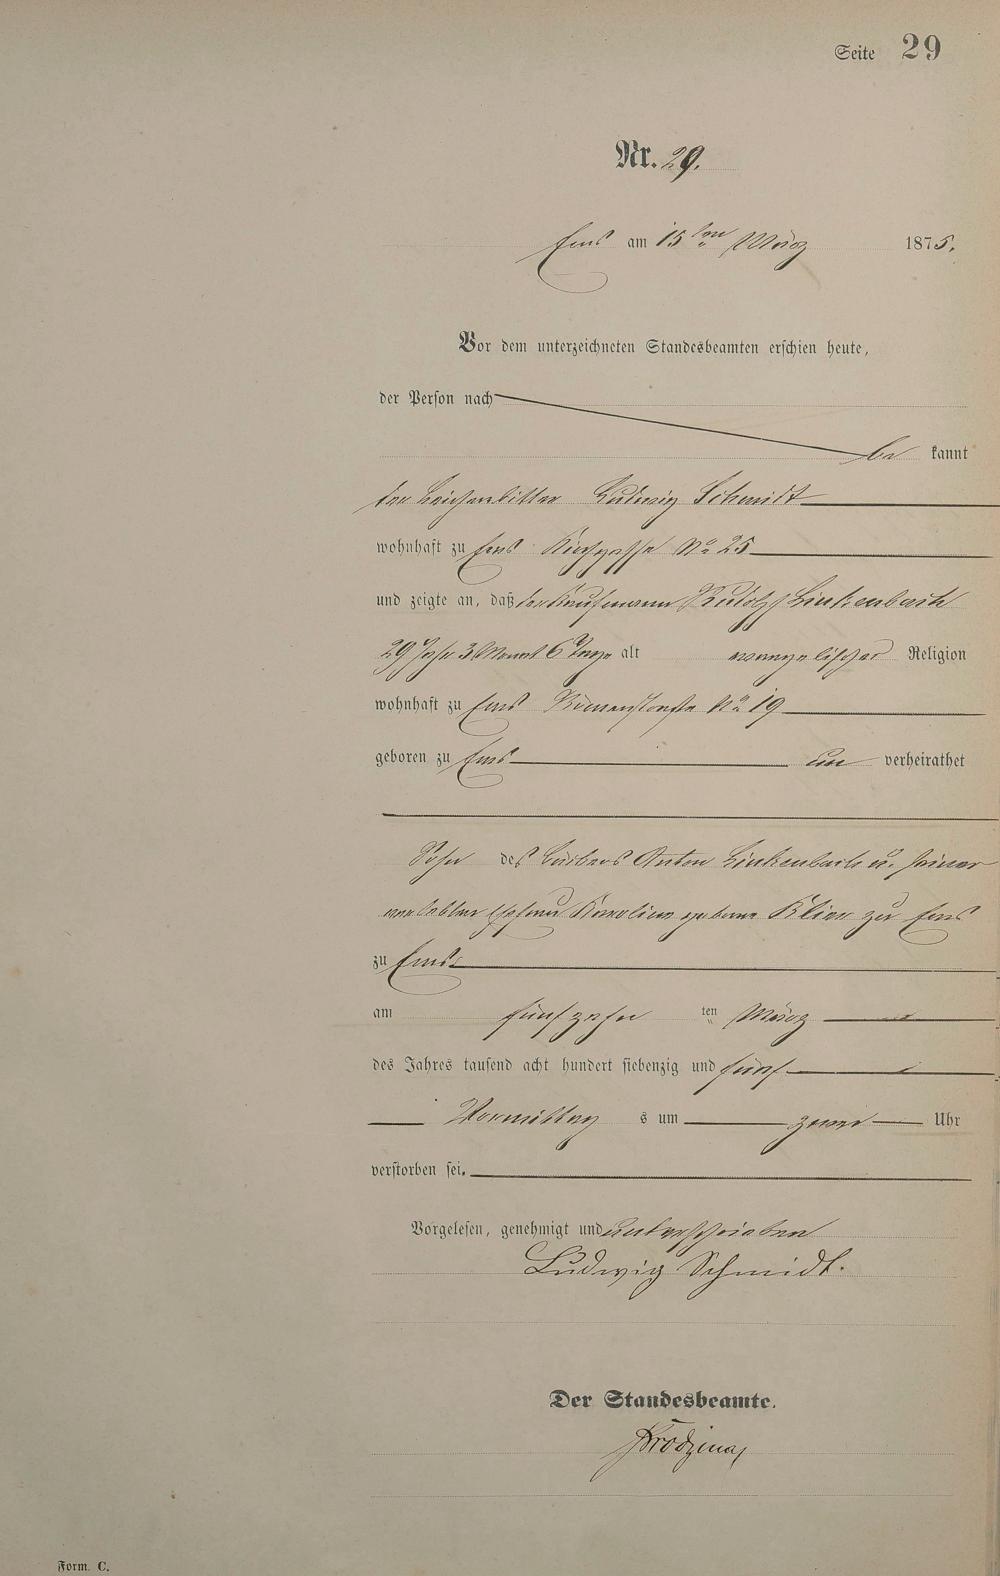 Seite 29
Nr. 29.
Ems am 15ten März 1875.
Vor dem unterzeichneten Standesbeamten erschien heute,
der Person nach
be kannt
der Leichenbitter Ludwig Schmidt
wohnhaft zu Ems Kirchgasse No 25
und zeigte an, daß der Kaufmann Rudolf Linkenbach
29 Jahr 3 Monat 6 Tage alt evangelischer Religion
wohnhaft zu Ems Römerstraße No 19
geboren zu Ems un verheirathet
Sohn des Anton Linkenbach u. seiner
verlebten Ehefrau Karoline geborne Klier zu Ems
zu Ems.
am fünfzehn ten März
des Jahres tausend acht hundert siebenzig und fünf
Vormittag s um zwei Uhr
verstorben sei.
Vorgelesen, genehmigt und unterschrieben
Ludwig Schmidt.
Der Standesbeamte.
Form. C.